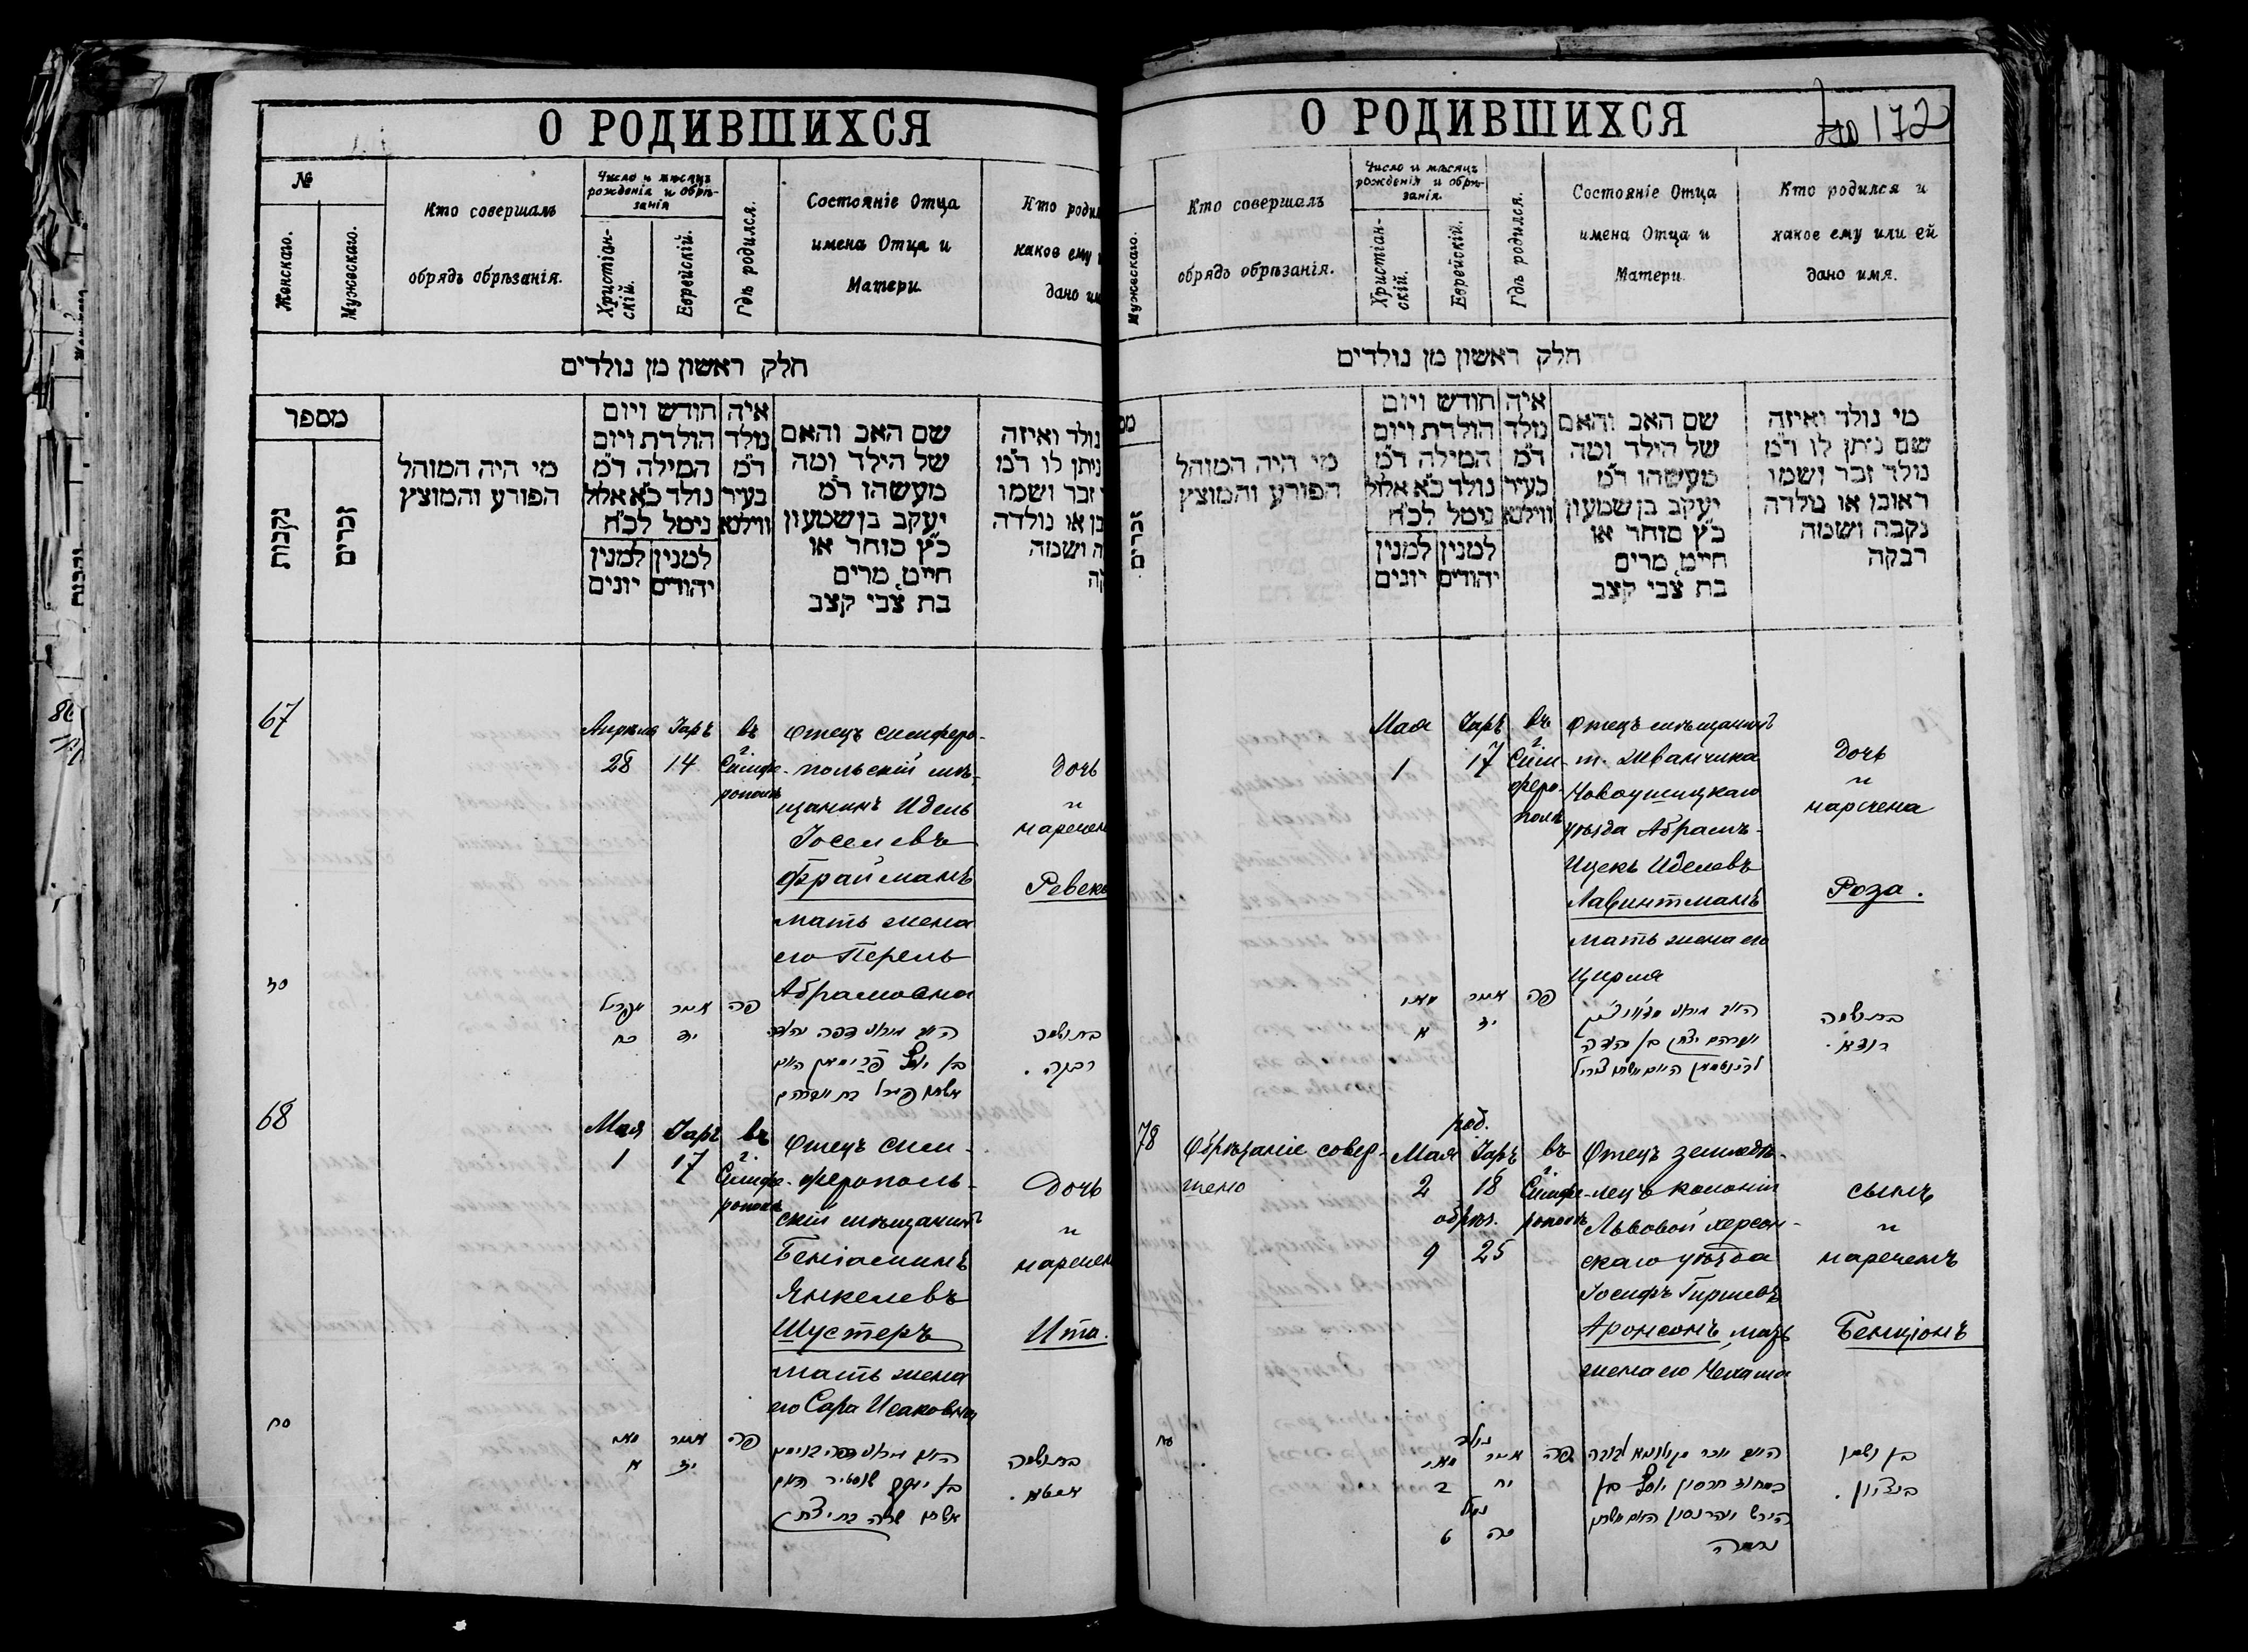 О РОДИВШИХСЯ
№
Женскаго.
Мужескаго.
Кто совершалъ
обрядъ обрѣзанія.
Число и мѣсяцъ
рожденія и обрѣ-
занія
Христіан-
скій.
Еврейскій.
Гдѣ родился.
Состояніе Отца
имена Отца и
Матери.
Кто роди
какое ему
дано им
חלק ראשון מן נולדים
מספר
נקבות
זכרים
מי היה המוהל
הפורע והמוצץ
חודש ויום
הולדת ויום
המילה ד״מ
נולד כ״א אלול
נימל לכ״ח
למנין למנין
יהודים יונים
איה
נולד
ד״מ
בעיר
ווילנא
שם האב והאם
של הילד ומה
מעשהו ד״מ
יעקב בן שמעון
כ״ץ סוחר או
חייט, מרים
בת צבי קצב
נולד ואיזה
ניתן לו ד״מ
זכר ושמו
בן או נולדה
ה ושמה
קה
67
Апрѣля
28
Iаръ
14
въ
г.
Симфе-
рополѣ
Отецъ симферо-
польскій мѣ-
щанинъ Идель
Iоселевъ
Фрайманъ
мать жена
его Перель
Абрамовна
Дочь
и
наречен
Ревек
אפריל
כח
אייר
יד
פה
בת ושמה
רבקה.
68
Мая
1
Iаръ
17
въ
г.
Симфе-
рополѣ
Отецъ сим-
ферополь-
скій мѣщанинъ
Бенiаминъ
Янкелевъ
Шустеръ
мать жена
его Сара Исаковна
Дочь
и
наречен
Ита.
מאי
א
אייר
יז
פה
בן יעקב שוסטיר האם
אשתו שרה בת יצחק
בת ושמה
איטא.
О РОДИВШИХСЯ
172
Мужескаго.
Кто совершалъ
обрядъ обрѣзанія.
Число и мѣсяцъ
рожденія и обрѣ-
занія.
Христіан-
скій.
Еврейскій.
Гдѣ родился.
Состояніе Отца
имена Отца и
Матери.
Кто родился и
какое ему или ей
дано имя.
חלק ראשון מן נולדים
זכרים
מי היה המוהל
הפורע והמוצץ
חודש ויום
הולדת ויום
המילה ד״מ
נולד כ״א אלול
נימל לכ״ח
למנין למנין
יהודים יונים
איה
נולד
ד״מ
בעיר
ווילנא
שם האב והאם
של הילד ומה
מעשהו ד״מ
יעקב בן שמעון
כ״ץ סוחר או
חייט, מרים
בת צבי קצב
מי נולד ואיזה
שם ניתן לו ד״מ
נולד זכר ושמו
ראובן או נולדה
נקבה ושמה
רבקה
Мая
1
Iаръ
17
въ
г.
Сим-
феро-
полѣ
Отецъ мѣщанинъ
м. Жванчика
Новоушицкаго
уѣзда Абрамъ-
Ицекъ Иделевъ
Лавинтманъ
мать жена его
Цирля
Дочь
и
наречена
Роза.
מאי
א
אייר
יז
פה
אברהם יצחק בן יהודה
בת ושמה
רוזא.
78
Обрѣзаніе совер-
шено
род.
Мая
2
Iаръ
18
обрѣз.
9
25
въ
г.
Симфе-
рополѣ
Отецъ земледѣ-
лецъ колоніи
Львовой херсон-
скаго уѣзда
Iосифъ Гиршевъ
Аронсонъ, мать
жена его Нехама
сынъ
и
нареченъ
Бенціонъ
עח
נולד
מאי
ב
אייר
יח
נימול
ט
כה
פה
הירש אהרנסון האם אשתו
נחמה
בן ושמו
בנציון.